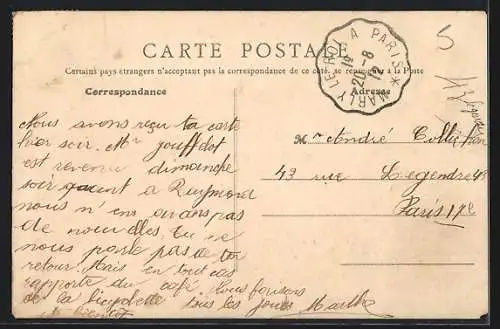 CARTE POSTALE
Certains pays étrangers n'acceptant pas la correspondance de ce côté, se renseigner à la Poste
Correspondance
Adresse
MARLY-LE-ROI A PARIS *
1e
20 - 8
12
5
Nous avons reçu ta carte
hier soir. Mr
est revenu dimanche
soir quant à Raymond
nous n'en avons pas
de nouvelles. Tu ne
nous parle pas de ton
retour. Mais en tout cas
rapporte du café. Nous faisons
de la bicyclette tous les jours Marthe
à bientôt
Mr André
43 rue Legendre 43
Paris 17e